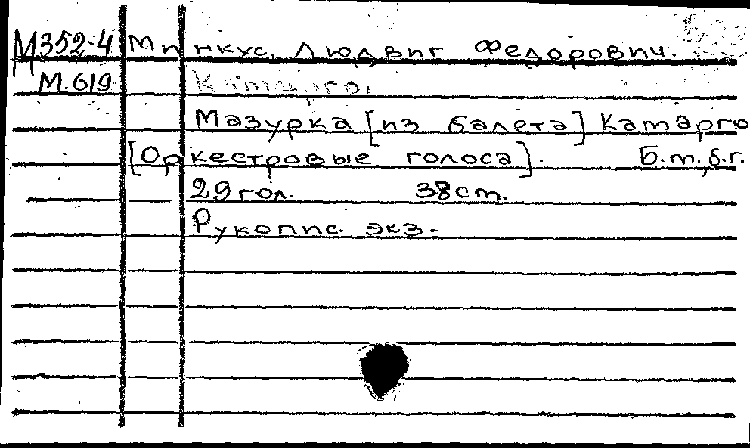 М352-4 Минкус, Людвиг Федорович.
М.619 Камарго.
Мазурка [из балета] Камарго
[Оркестровые голоса]. Б.м., б.г.
29 гол. 38 ст.
Рукопис. экз.